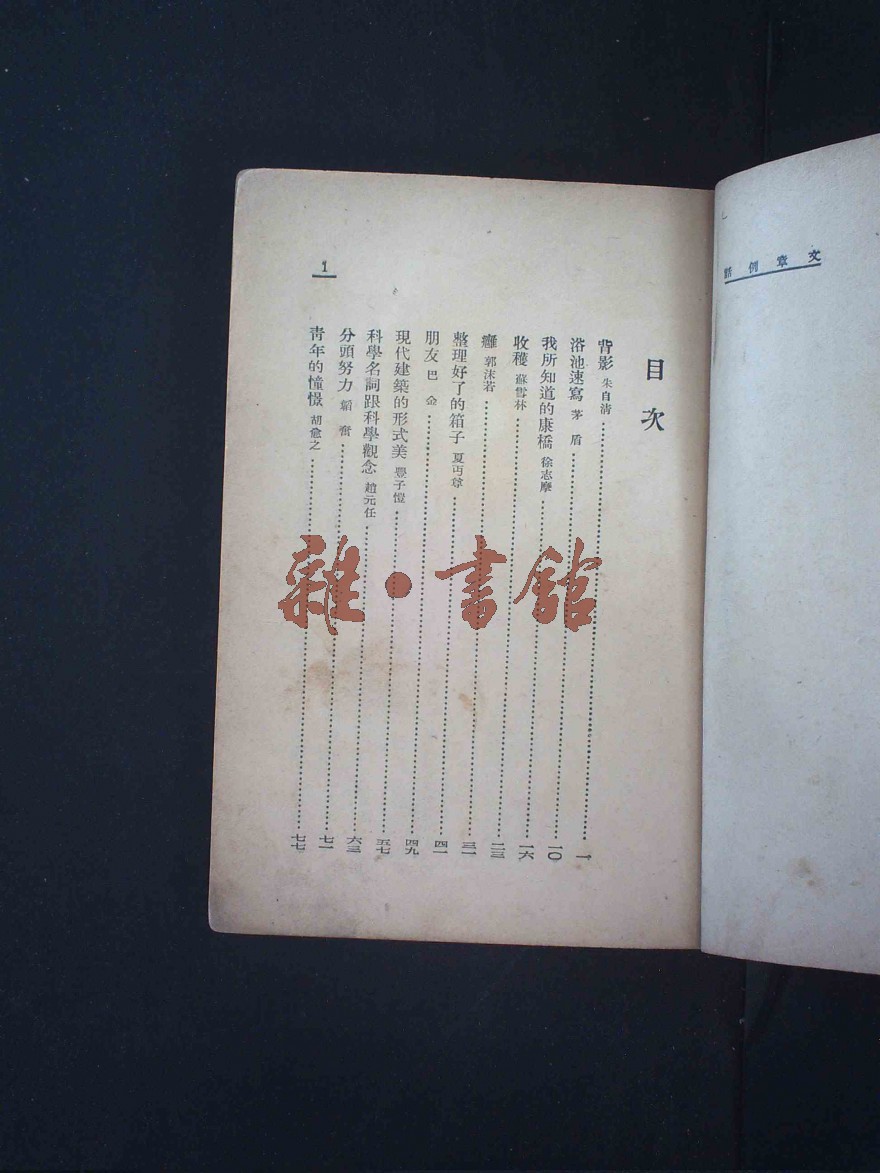 文章例話
目次
背影 朱自清……一
浴池速寫 茅盾……一〇
我所知道的康橋 徐志摩……一六
收穫 蘇雪林……二三
癰 郭沫若……三一
整理好了的箱子 夏丏尊……四一
朋友 巴金……四九
現代建築的形式美 豐子愷……五七
科學名詞跟科學觀念 趙元任……六三
分頭努力 韜奮……七一
青年的憧憬 胡愈之……七七
1
雜·書館